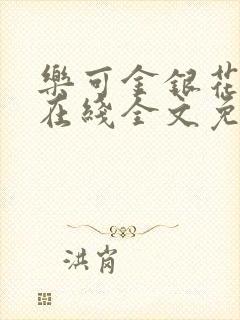 樂可金銀花
在綫全文免
洪崗